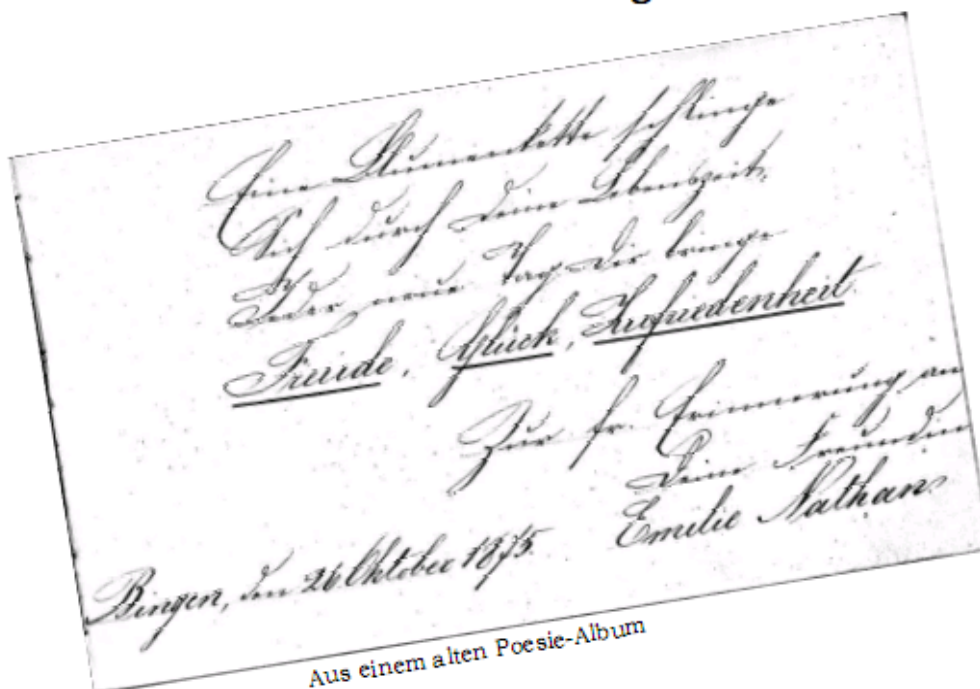 Eine Blumenkette schlinge
Sich durch Deine Lebenszeit,
Jeder neue Tag Dir bringe
Freude, Glück, Zufriedenheit.
Zur fr. Erinnerung an
Deine Freundin
Emilie Nathan.
Bingen, den 26 Oktober 1875.
Aus einem alten Poesie-Album